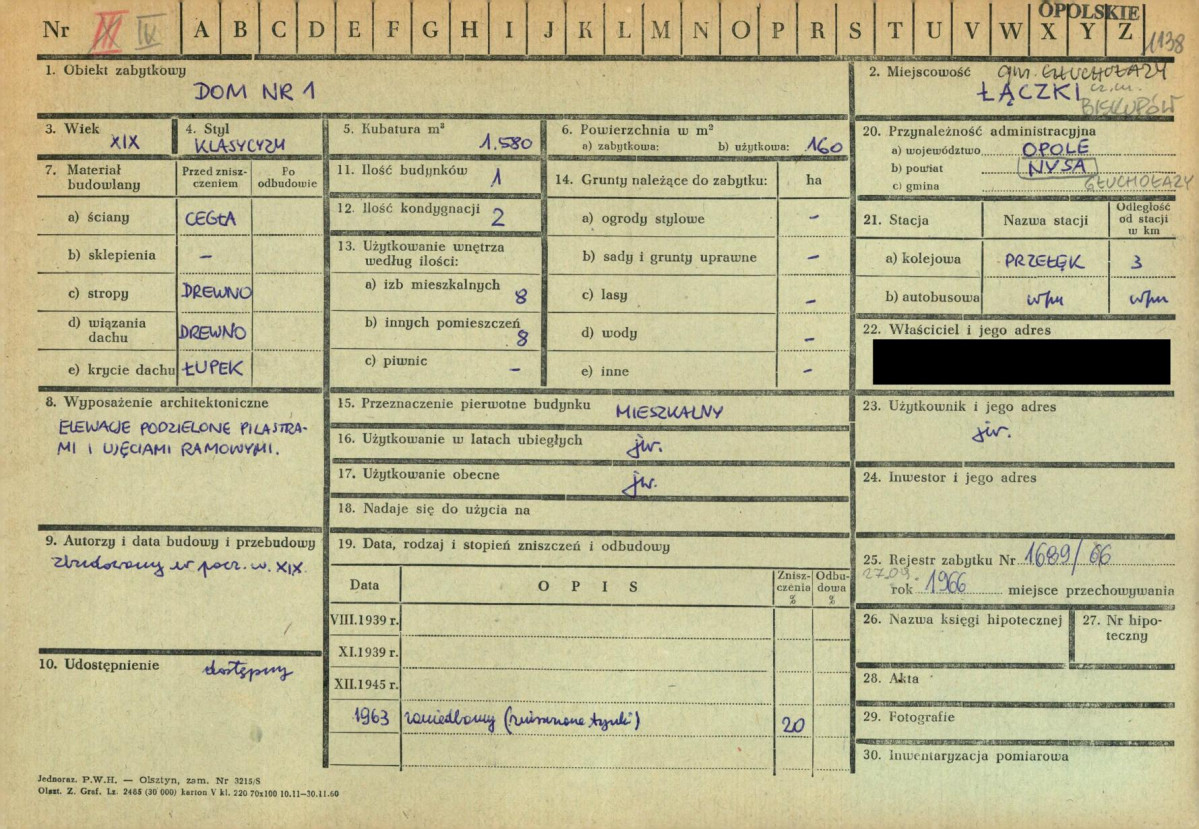 OPOLSKIE
Nr III IV A B C D E F G H I J K L M N O P R S T U V W X Y Z
1138
1. Obiekt zabytkowy
DOM NR 1
2. Miejscowość gm. GŁUCHOŁAZY
ŁĄCZKI cz. m.
BISKUPÓW
3. Wiek
XIX
4. Styl
KLASYCYZM
5. Kubatura m³
1.580
6. Powierzchnia w m²
a) zabytkowa: b) użytkowa: 160
20. Przynależność administracyjna
a) województwo OPOLE
b) powiat NYSA
c) gmina GŁUCHOŁAZY
7. Materiał budowlany
Przed znisz-
czeniem
Po
odbudowie
a) ściany CEGŁA
b) sklepienia –
c) stropy DREWNO
d) wiązania
dachu DREWNO
e) krycie dachu ŁUPEK
11. Ilość budynków 1
12. Ilość kondygnacji 2
13. Użytkowanie wnętrza
według ilości:
a) izb mieszkalnych 8
b) innych pomieszczeń 8
c) piwnic –
14. Grunty należące do zabytku: ha
a) ogrody stylowe –
b) sady i grunty uprawne –
c) lasy –
d) wody –
e) inne –
21. Stacja Nazwa stacji
Odległość
od stacji
w km
a) kolejowa PRZEŁĘK 3
b) autobusowa wpu wpu
22. Właściciel i jego adres
8. Wyposażenie architektoniczne
ELEWACJE PODZIELONE PILASTRA-
MI I UJĘCIAMI RAMOWYMI.
15. Przeznaczenie pierwotne budynku MIESZKALNY
16. Użytkowanie w latach ubiegłych jw.
17. Użytkowanie obecne jw.
18. Nadaje się do użycia na
23. Użytkownik i jego adres
jw.
24. Inwestor i jego adres
9. Autorzy i data budowy i przebudowy
zbudowany w pocz. w. XIX.
10. Udostępnienie dostępny
19. Data, rodzaj i stopień zniszczeń i odbudowy
Data OPIS
Znisz-
czenia
%
Odbu-
dowa
%
VIII.1939 r.
XI.1939 r.
XII.1945 r.
1963 zaniedbany (zniszczone tynki) 20
25. Rejestr zabytku Nr 1689/66
27.09.
rok 1966 miejsce przechowywania
26. Nazwa księgi hipotecznej
27. Nr hipo-
teczny
28. Akta
29. Fotografie
30. Inwentaryzacja pomiarowa
Jednoraz. P.W.H. — Olsztyn, zam. Nr 3215/S
Olszt. Z. Graf. Lz. 2485 (30 000) karton V kl. 220 70x100 10.11–30.11.60